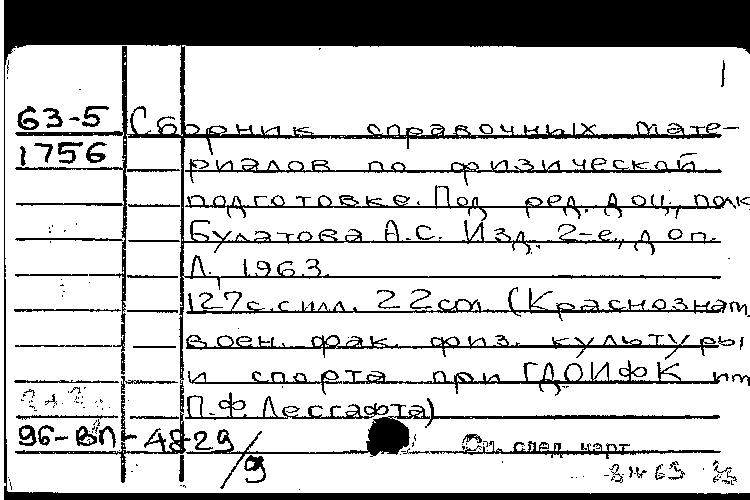 1
63-5 Сборник справочных мате-
1756 риалов по физической
подготовке. Под ред. доц., полк
Булатова А.С. Изд. 2-е, доп.
Л., 1963.
127с.силл. 22см. (Краснознам.
воен. фак. физ. культуры
и спорта при ГДОИФК им
П.Ф. Лесгафта)
96-ВП-4829/9 См. след. карт.